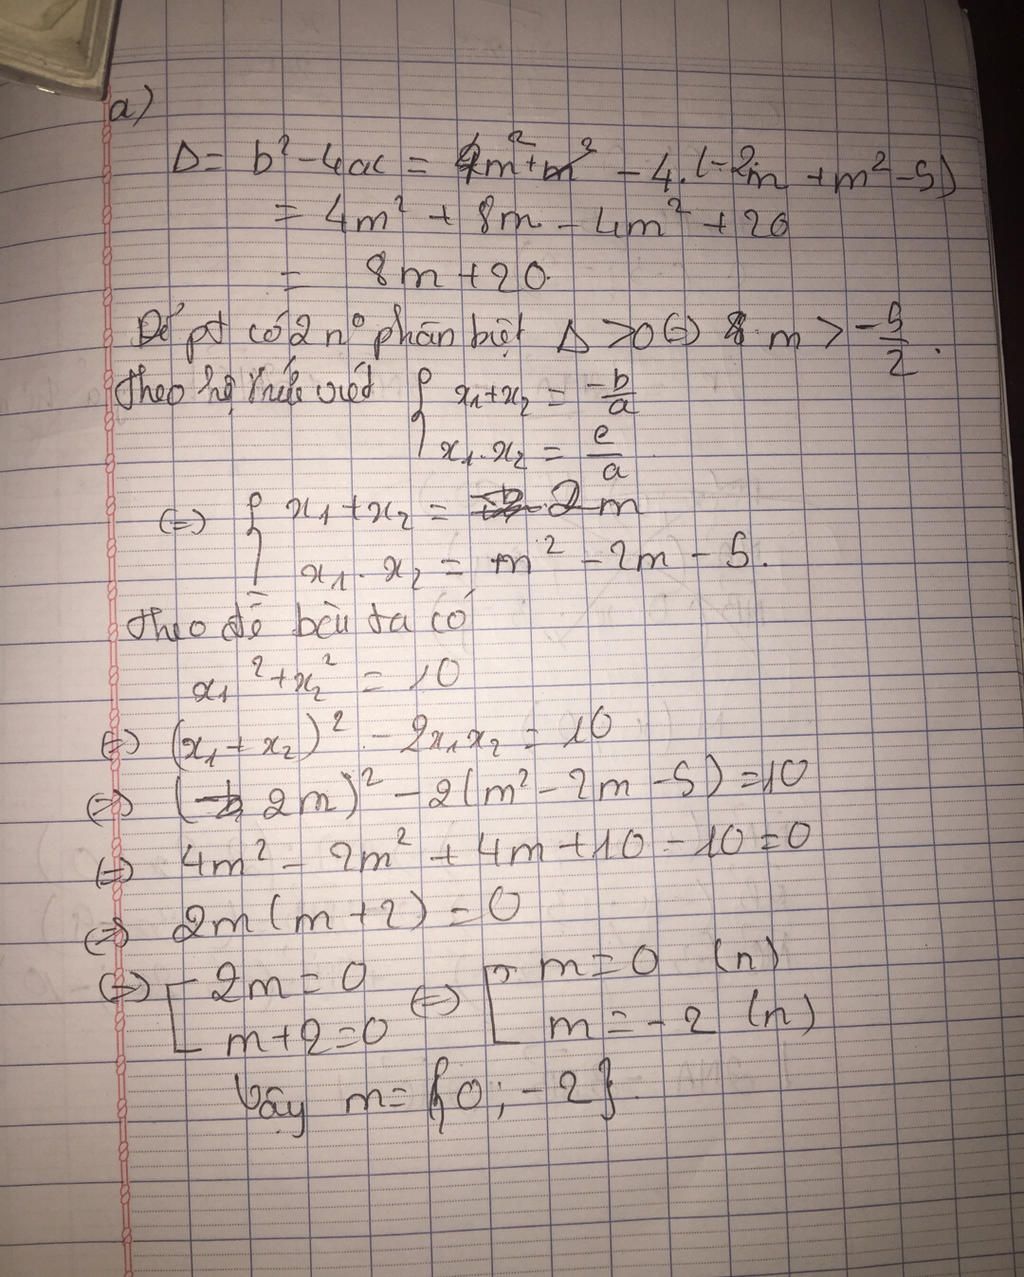 a)
Δ = b² - 4ac = 4m² + m² - 4.(-2m + m² - 5)
= 4m² + 8m - 4m² + 20
= 8m + 20
Để pt có 2 n⁰ phân biệt Δ > 0 (=) m > -5/2.
theo hệ thức viét { x₁+x₂ = -b/a
x₁.x₂ = c/a
(=) { x₁ + x₂ = 2m
x₁. x₂ = m² - 2m - 5.
theo đề bài ta có
x₁² + x₂² = 10
(=) (x₁ + x₂)² - 2x₁x₂ = 10
(=) (2m)² - 2(m² - 2m - 5) = 10
(=) 4m² - 2m² + 4m + 10 - 10 = 0
(=) 2m(m + 2) = 0
(=) [ 2m = 0 (=) [ m = 0 (n)
m + 2 = 0 m = -2 (n)
Vậy m = {0; -2}.